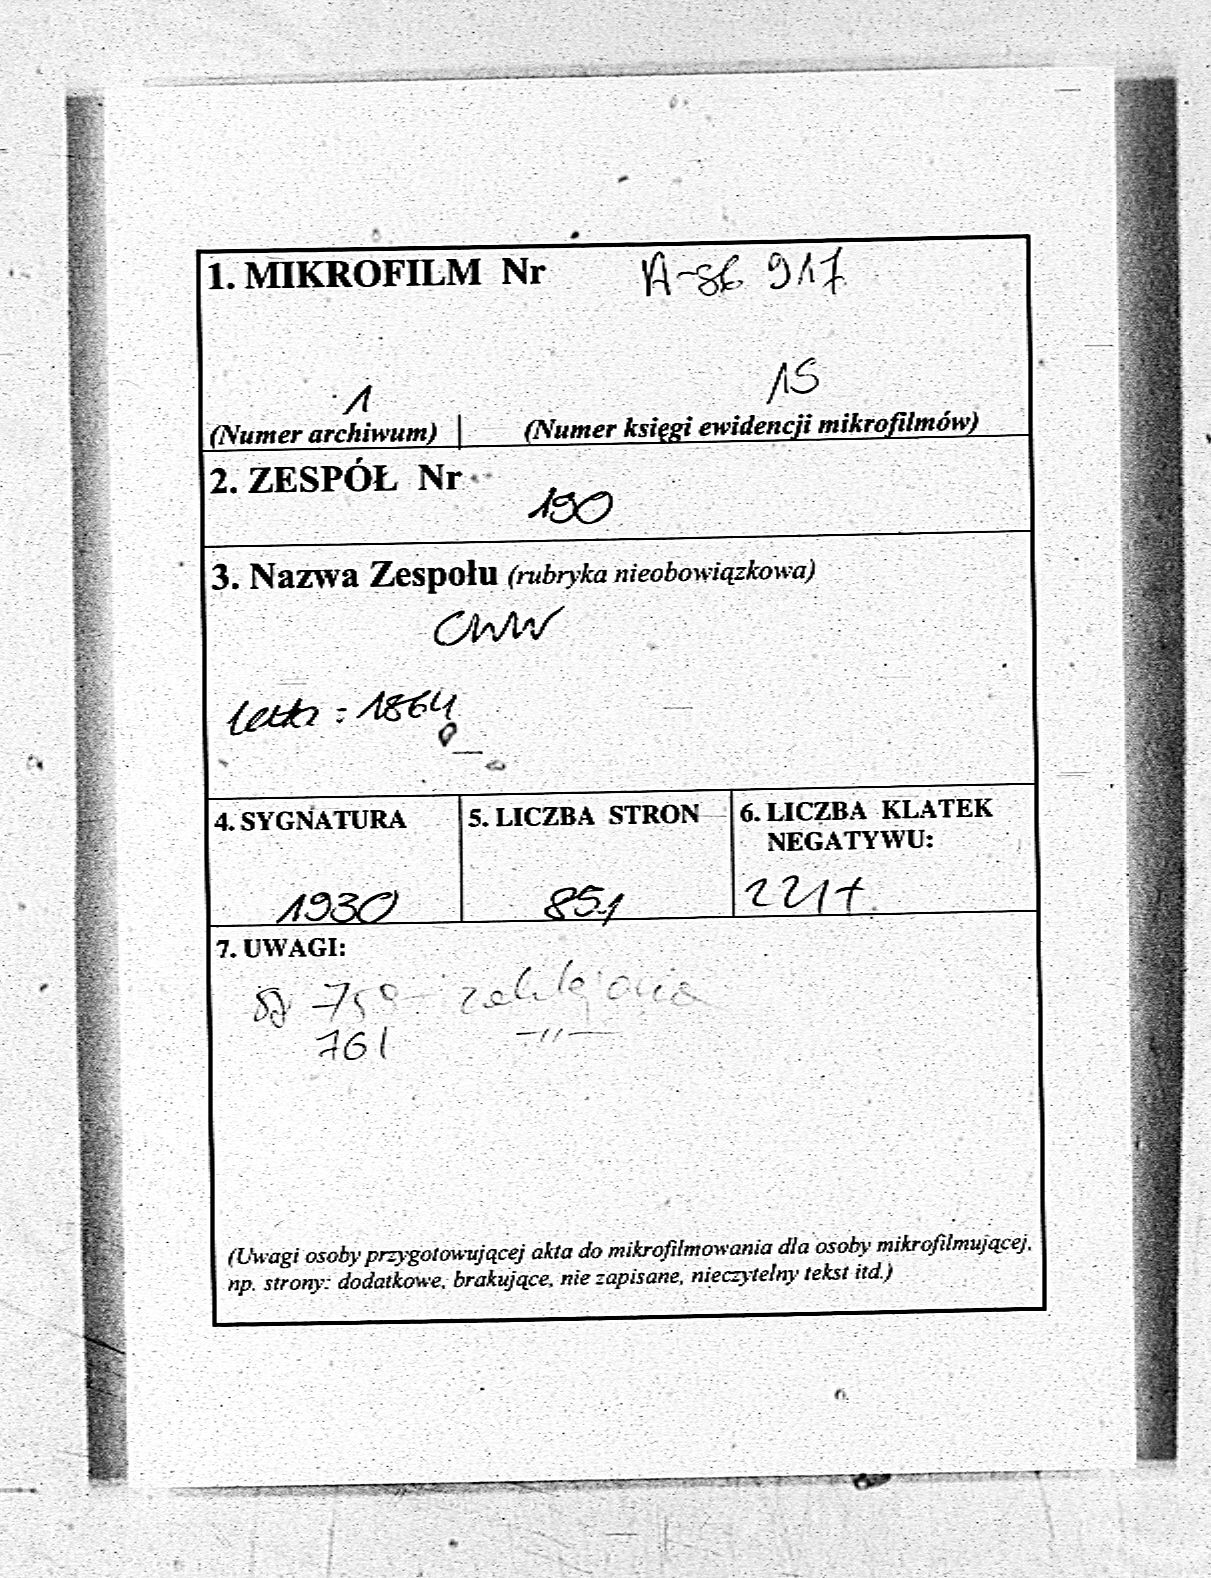 1. MIKROFILM Nr 917
1 15
(Numer archiwum) (Numer księgi ewidencji mikrofilmów)
2. ZESPÓŁ Nr
190
3. Nazwa Zespołu (rubryka nieobowiązkowa)
CWW
: 1864
4. SYGNATURA 5. LICZBA STRON 6. LICZBA KLATEK
NEGATYWU:
1930 851 221+
7. UWAGI:
759 - zaklejania
761 —"—
(Uwagi osoby przygotowującej akta do mikrofilmowania dla osoby mikrofilmującej,
np. strony: dodatkowe, brakujące, nie zapisane, nieczytelny tekst itd.)